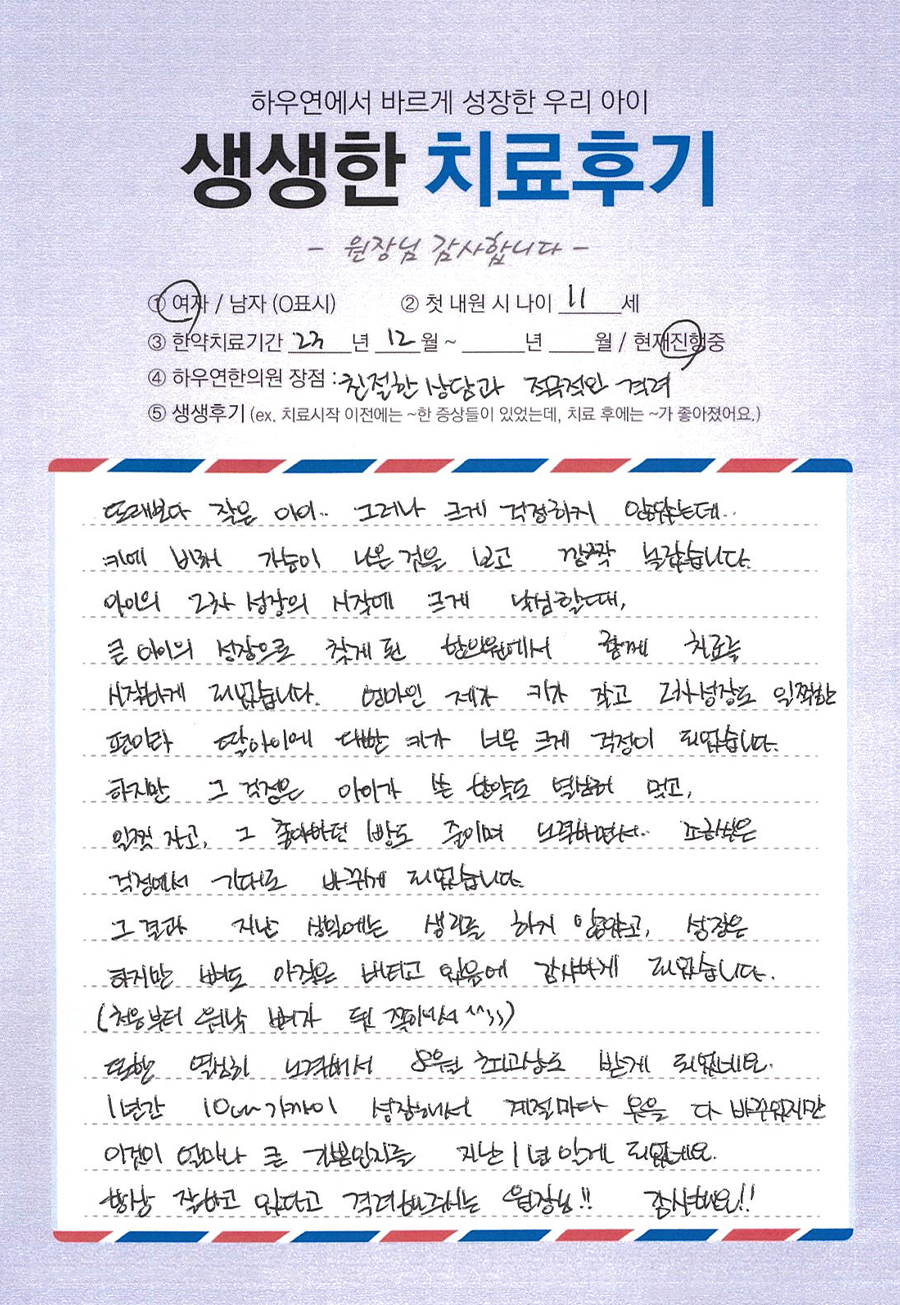 하우연에서 바르게 성장한 우리 아이
생생한 치료후기
- 원장님 감사합니다 -
① 여자 / 남자 (O표시) ② 첫 내원 시 나이 11세
③ 한약치료기간 23년 12월 ~ ____년 ____월 / 현재진행중
④ 하우연한의원 장점 : 친절한 상담과 적극적인 격려
⑤ 생생후기 (ex. 치료시작 이전에는 ~한 증상들이 있었는데, 치료 후에는 ~가 좋아졌어요.)
또래보다 작은 아이.. 그러나 크게 걱정하지 않았는데..
키에 비해 가슴이 나온 것을 보고 깜짝 놀랐습니다.
아이의 2차 성장의 시작에 크게 낙심할때,
큰 아이의 성장으로 찾게 된 한의원에서 함께 치료를
시작하게 되었습니다. 엄마인 제가 키가 작고 2차성장도 일찍한
편이라 딸아이에 대한 키가 너무 크게 걱정이 되었습니다.
하지만 그 걱정은 아이가 쓴 한약도 열심히 먹고,
일찍 자고, 그 좋아하던 빵도 줄이며 노력하면서.. 조금씩은
걱정에서 기대로 바뀌게 되었습니다.
그 결과 지난 생일에는 생리를 하지 않았고, 성장은
하지만 뼈도 아직은 버티고 있음에 감사하게 되었습니다.
(처음부터 워낙 뼈가 뒤 쪽이여서^^;;)
또한 열심히 노력해서 8월 최고상도 받게 되었네요.
1년간 10cm 가까이 성장해서 계절마다 옷을 다 바꾸었지만
이것이 얼마나 큰 기쁨인지를 지난 1년 알게 되었네요.
항상 잘하고 있다고 격려해주시는 원장님!! 감사해요!!